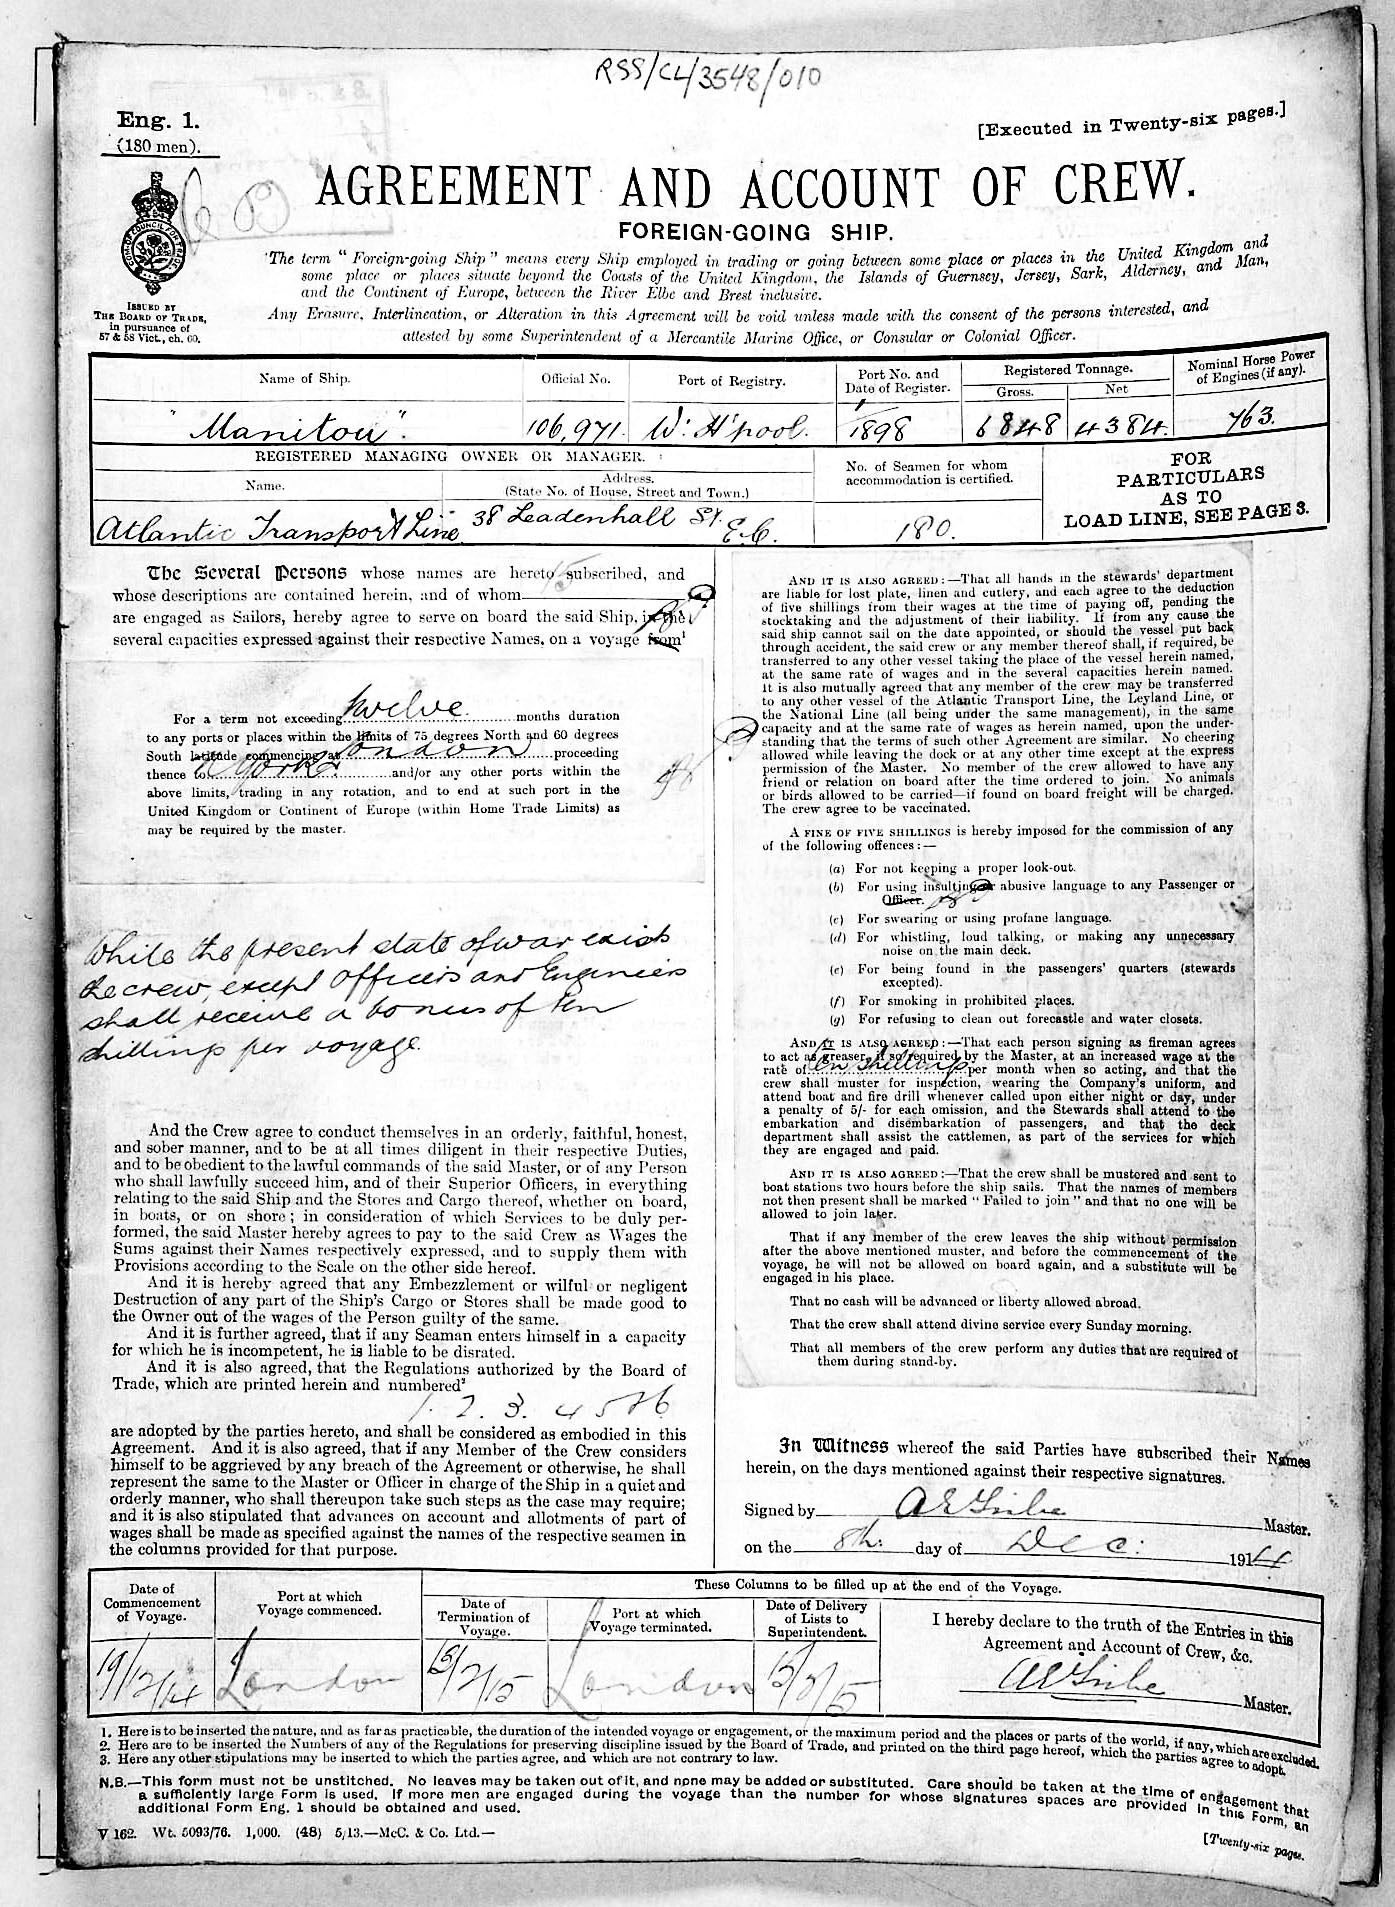 RSS/CL/3548/010
Eng. 1.
(180 men).
[Executed in Twenty-six pages.]
AGREEMENT AND ACCOUNT OF CREW.
FOREIGN-GOING SHIP.
The term "Foreign-going Ship" means every Ship employed in trading or going between some place or places in the United Kingdom and
some place or places situate beyond the Coasts of the United Kingdom, the Islands of Guernsey, Jersey, Sark, Alderney, and Man,
and the Continent of Europe, between the River Elbe and Brest inclusive.
Any Erasure, Interlineation, or Alteration in this Agreement will be void unless made with the consent of the persons interested, and
attested by some Superintendent of a Mercantile Marine Office, or Consular or Colonial Officer.
ISSUED BY
THE BOARD OF TRADE,
in pursuance of
57 & 58 Vict., ch. 60.
Name of Ship.
Official No.
Port of Registry.
Port No. and
Date of Register.
Registered Tonnage.
Gross.
Net
Nominal Horse Power
of Engines (if any).
"Manitou".
106,971.
W. H'pool.
1/1898
6848
4384.
763.
REGISTERED MANAGING OWNER OR MANAGER.
Name.
Address.
(State No. of House, Street and Town.)
No. of Seamen for whom
accommodation is certified.
FOR
PARTICULARS
AS TO
LOAD LINE, SEE PAGE 3.
Atlantic Transport Line
38 Leadenhall St. E.C.
180.
The Several Persons whose names are hereto subscribed, and
whose descriptions are contained herein, and of whom 15
are engaged as Sailors, hereby agree to serve on board the said Ship, in the
several capacities expressed against their respective Names, on a voyage from¹
For a term not exceeding twelve months duration
to any ports or places within the limits of 75 degrees North and 60 degrees
South latitude commencing at London proceeding
thence to N York and/or any other ports within the
above limits, trading in any rotation, and to end at such port in the
United Kingdom or Continent of Europe (within Home Trade Limits) as
may be required by the master.
While the present state of war exists
the crew, except Officers and Engineers
shall receive a bonus of ten
shillings per voyage.
And the Crew agree to conduct themselves in an orderly, faithful, honest,
and sober manner, and to be at all times diligent in their respective Duties,
and to be obedient to the lawful commands of the said Master, or of any Person
who shall lawfully succeed him, and of their Superior Officers, in everything
relating to the said Ship and the Stores and Cargo thereof, whether on board,
in boats, or on shore; in consideration of which Services to be duly per-
formed, the said Master hereby agrees to pay to the said Crew as Wages the
Sums against their Names respectively expressed, and to supply them with
Provisions according to the Scale on the other side hereof.
And it is hereby agreed that any Embezzlement or wilful or negligent
Destruction of any part of the Ship's Cargo or Stores shall be made good to
the Owner out of the wages of the Person guilty of the same.
And it is further agreed, that if any Seaman enters himself in a capacity
for which he is incompetent, he is liable to be disrated.
And it is also agreed, that the Regulations authorized by the Board of
Trade, which are printed herein and numbered²
1. 2. 3. 4 5 & 6
are adopted by the parties hereto, and shall be considered as embodied in this
Agreement. And it is also agreed, that if any Member of the Crew considers
himself to be aggrieved by any breach of the Agreement or otherwise, he shall
represent the same to the Master or Officer in charge of the Ship in a quiet and
orderly manner, who shall thereupon take such steps as the case may require;
and it is also stipulated that advances on account and allotments of part of
wages shall be made as specified against the names of the respective seamen in
the columns provided for that purpose.
AND IT IS ALSO AGREED:—That all hands in the stewards' department
are liable for lost plate, linen and cutlery, and each agree to the deduction
of five shillings from their wages at the time of paying off, pending the
stocktaking and the adjustment of their liability. If from any cause the
said ship cannot sail on the date appointed, or should the vessel put back
through accident, the said crew or any member thereof shall, if required, be
transferred to any other vessel taking the place of the vessel herein named,
at the same rate of wages and in the several capacities herein named.
It is also mutually agreed that any member of the crew may be transferred
to any other vessel of the Atlantic Transport Line, the Leyland Line, or
the National Line (all being under the same management), in the same
capacity and at the same rate of wages as herein named, upon the under-
standing that the terms of such other Agreement are similar. No cheering
allowed while leaving the dock or at any other time except at the express
permission of the Master. No member of the crew allowed to have any
friend or relation on board after the time ordered to join. No animals
or birds allowed to be carried—if found on board freight will be charged.
The crew agree to be vaccinated.
A FINE OF FIVE SHILLINGS is hereby imposed for the commission of any
of the following offences:—
(a) For not keeping a proper look-out.
(b) For using insulting or abusive language to any Passenger or
Officer.
(c) For swearing or using profane language.
(d) For whistling, loud talking, or making any unnecessary
noise on the main deck.
(e) For being found in the passengers' quarters (stewards
excepted).
(f) For smoking in prohibited places.
(g) For refusing to clean out forecastle and water closets.
AND IT IS ALSO AGREED:—That each person signing as fireman agrees
to act as greaser, if so required by the Master, at an increased wage at the
rate of ten shillings per month when so acting, and that the
crew shall muster for inspection, wearing the Company's uniform, and
attend boat and fire drill whenever called upon either night or day, under
a penalty of 5/- for each omission, and the Stewards shall attend to the
embarkation and disembarkation of passengers, and that the deck
department shall assist the cattlemen, as part of the services for which
they are engaged and paid.
AND IT IS ALSO AGREED:—That the crew shall be mustered and sent to
boat stations two hours before the ship sails. That the names of members
not then present shall be marked "Failed to join" and that no one will be
allowed to join later.
That if any member of the crew leaves the ship without permission
after the above mentioned muster, and before the commencement of the
voyage, he will not be allowed on board again, and a substitute will be
engaged in his place.
That no cash will be advanced or liberty allowed abroad.
That the crew shall attend divine service every Sunday morning.
That all members of the crew perform any duties that are required of
them during stand-by.
In Witness whereof the said Parties have subscribed their Names
herein, on the days mentioned against their respective signatures.
Signed by Master.
on the 8th. day of Dec: 1914
Date of
Commencement
of Voyage.
Port at which
Voyage commenced.
These Columns to be filled up at the end of the Voyage.
Date of
Termination of
Voyage.
Port at which
Voyage terminated.
Date of Delivery
of Lists to
Superintendent.
I hereby declare to the truth of the Entries in this
Agreement and Account of Crew, &c.
Master.
19/12/14
London
London
1. Here is to be inserted the nature, and as far as practicable, the duration of the intended voyage or engagement, or the maximum period and the places or parts of the world, if any, which are excluded.
2. Here are to be inserted the Numbers of any of the Regulations for preserving discipline issued by the Board of Trade, and printed on the third page hereof, which the parties agree to adopt.
3. Here any other stipulations may be inserted to which the parties agree, and which are not contrary to law.
N.B.—This form must not be unstitched. No leaves may be taken out of it, and none may be added or substituted. Care should be taken at the time of engagement that
a sufficiently large Form is used. If more men are engaged during the voyage than the number for whose signatures spaces are provided in this Form, an
additional Form Eng. 1 should be obtained and used.
V 162. Wt. 5093/76. 1,000. (48) 5/13.—McC. & Co. Ltd.—
[Twenty-six pages.